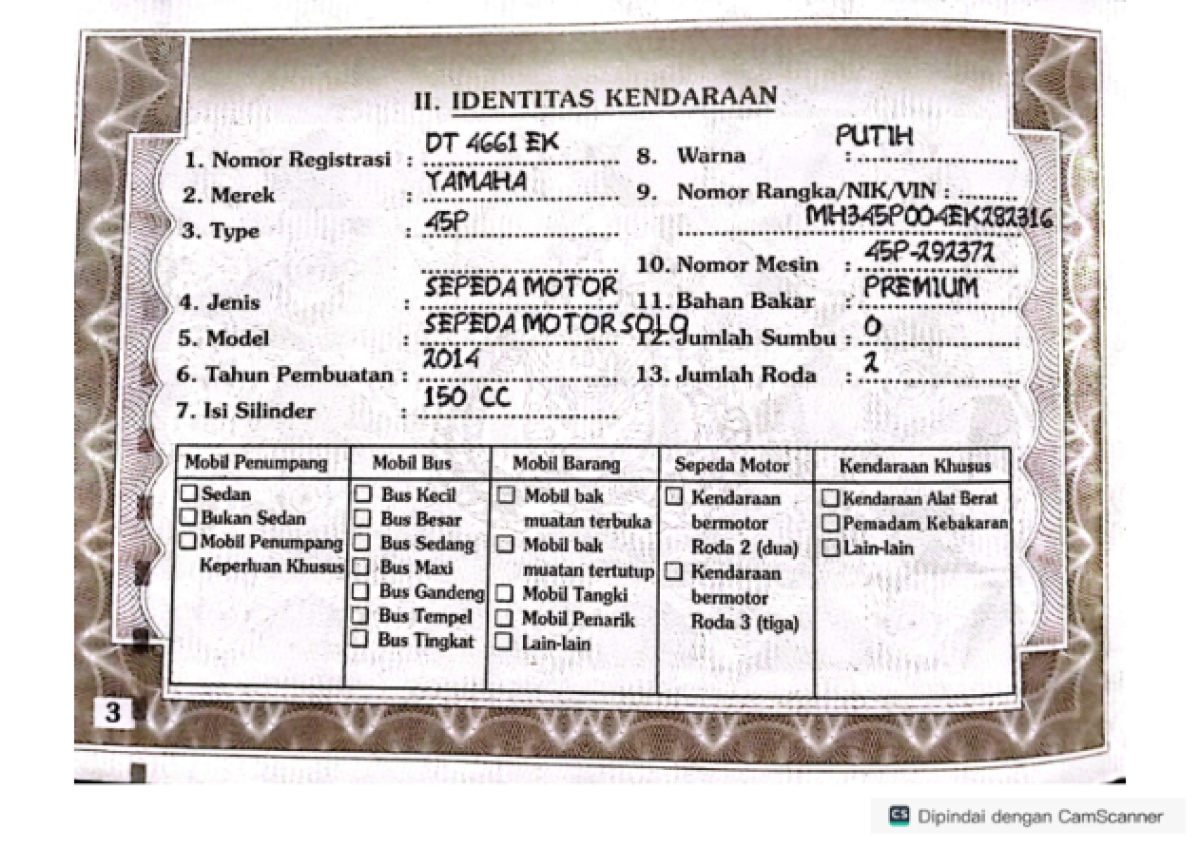 II. IDENTITAS KENDARAAN
1. Nomor Registrasi : DT 4661 EK
2. Merek : YAMAHA
3. Type : 45P
4. Jenis : SEPEDA MOTOR
5. Model : SEPEDA MOTOR SOLO
6. Tahun Pembuatan : 2014
7. Isi Silinder : 150 CC
8. Warna : PUTIH
9. Nomor Rangka/NIK/VIN :
MH345P004EK282316
10. Nomor Mesin : 45P-292372
11. Bahan Bakar : PREMIUM
12. Jumlah Sumbu : 0
13. Jumlah Roda : 2
Mobil Penumpang
Sedan
Bukan Sedan
Mobil Penumpang
Keperluan Khusus
Mobil Bus
Bus Kecil
Bus Besar
Bus Sedang
Bus Maxi
Bus Gandeng
Bus Tempel
Bus Tingkat
Mobil Barang
Mobil bak
muatan terbuka
Mobil bak
muatan tertutup
Mobil Tangki
Mobil Penarik
Lain-lain
Sepeda Motor
Kendaraan
bermotor
Roda 2 (dua)
Kendaraan
bermotor
Roda 3 (tiga)
Kendaraan Khusus
Kendaraan Alat Berat
Pemadam Kebakaran
Lain-lain
3
CS Dipindai dengan CamScanner